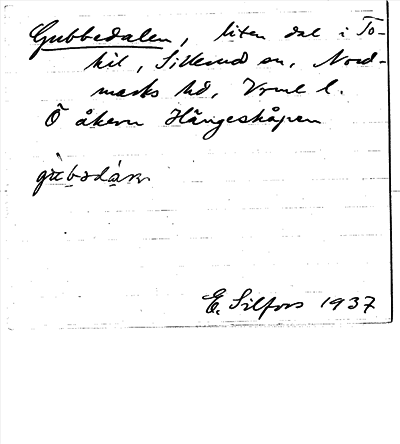 Gubbedalen, liten dal i To-
kil, Sillerud sn, Nord-
marks hd, Vrml l.
Ö åkern Hängeskåpen
E. Silfors 1937